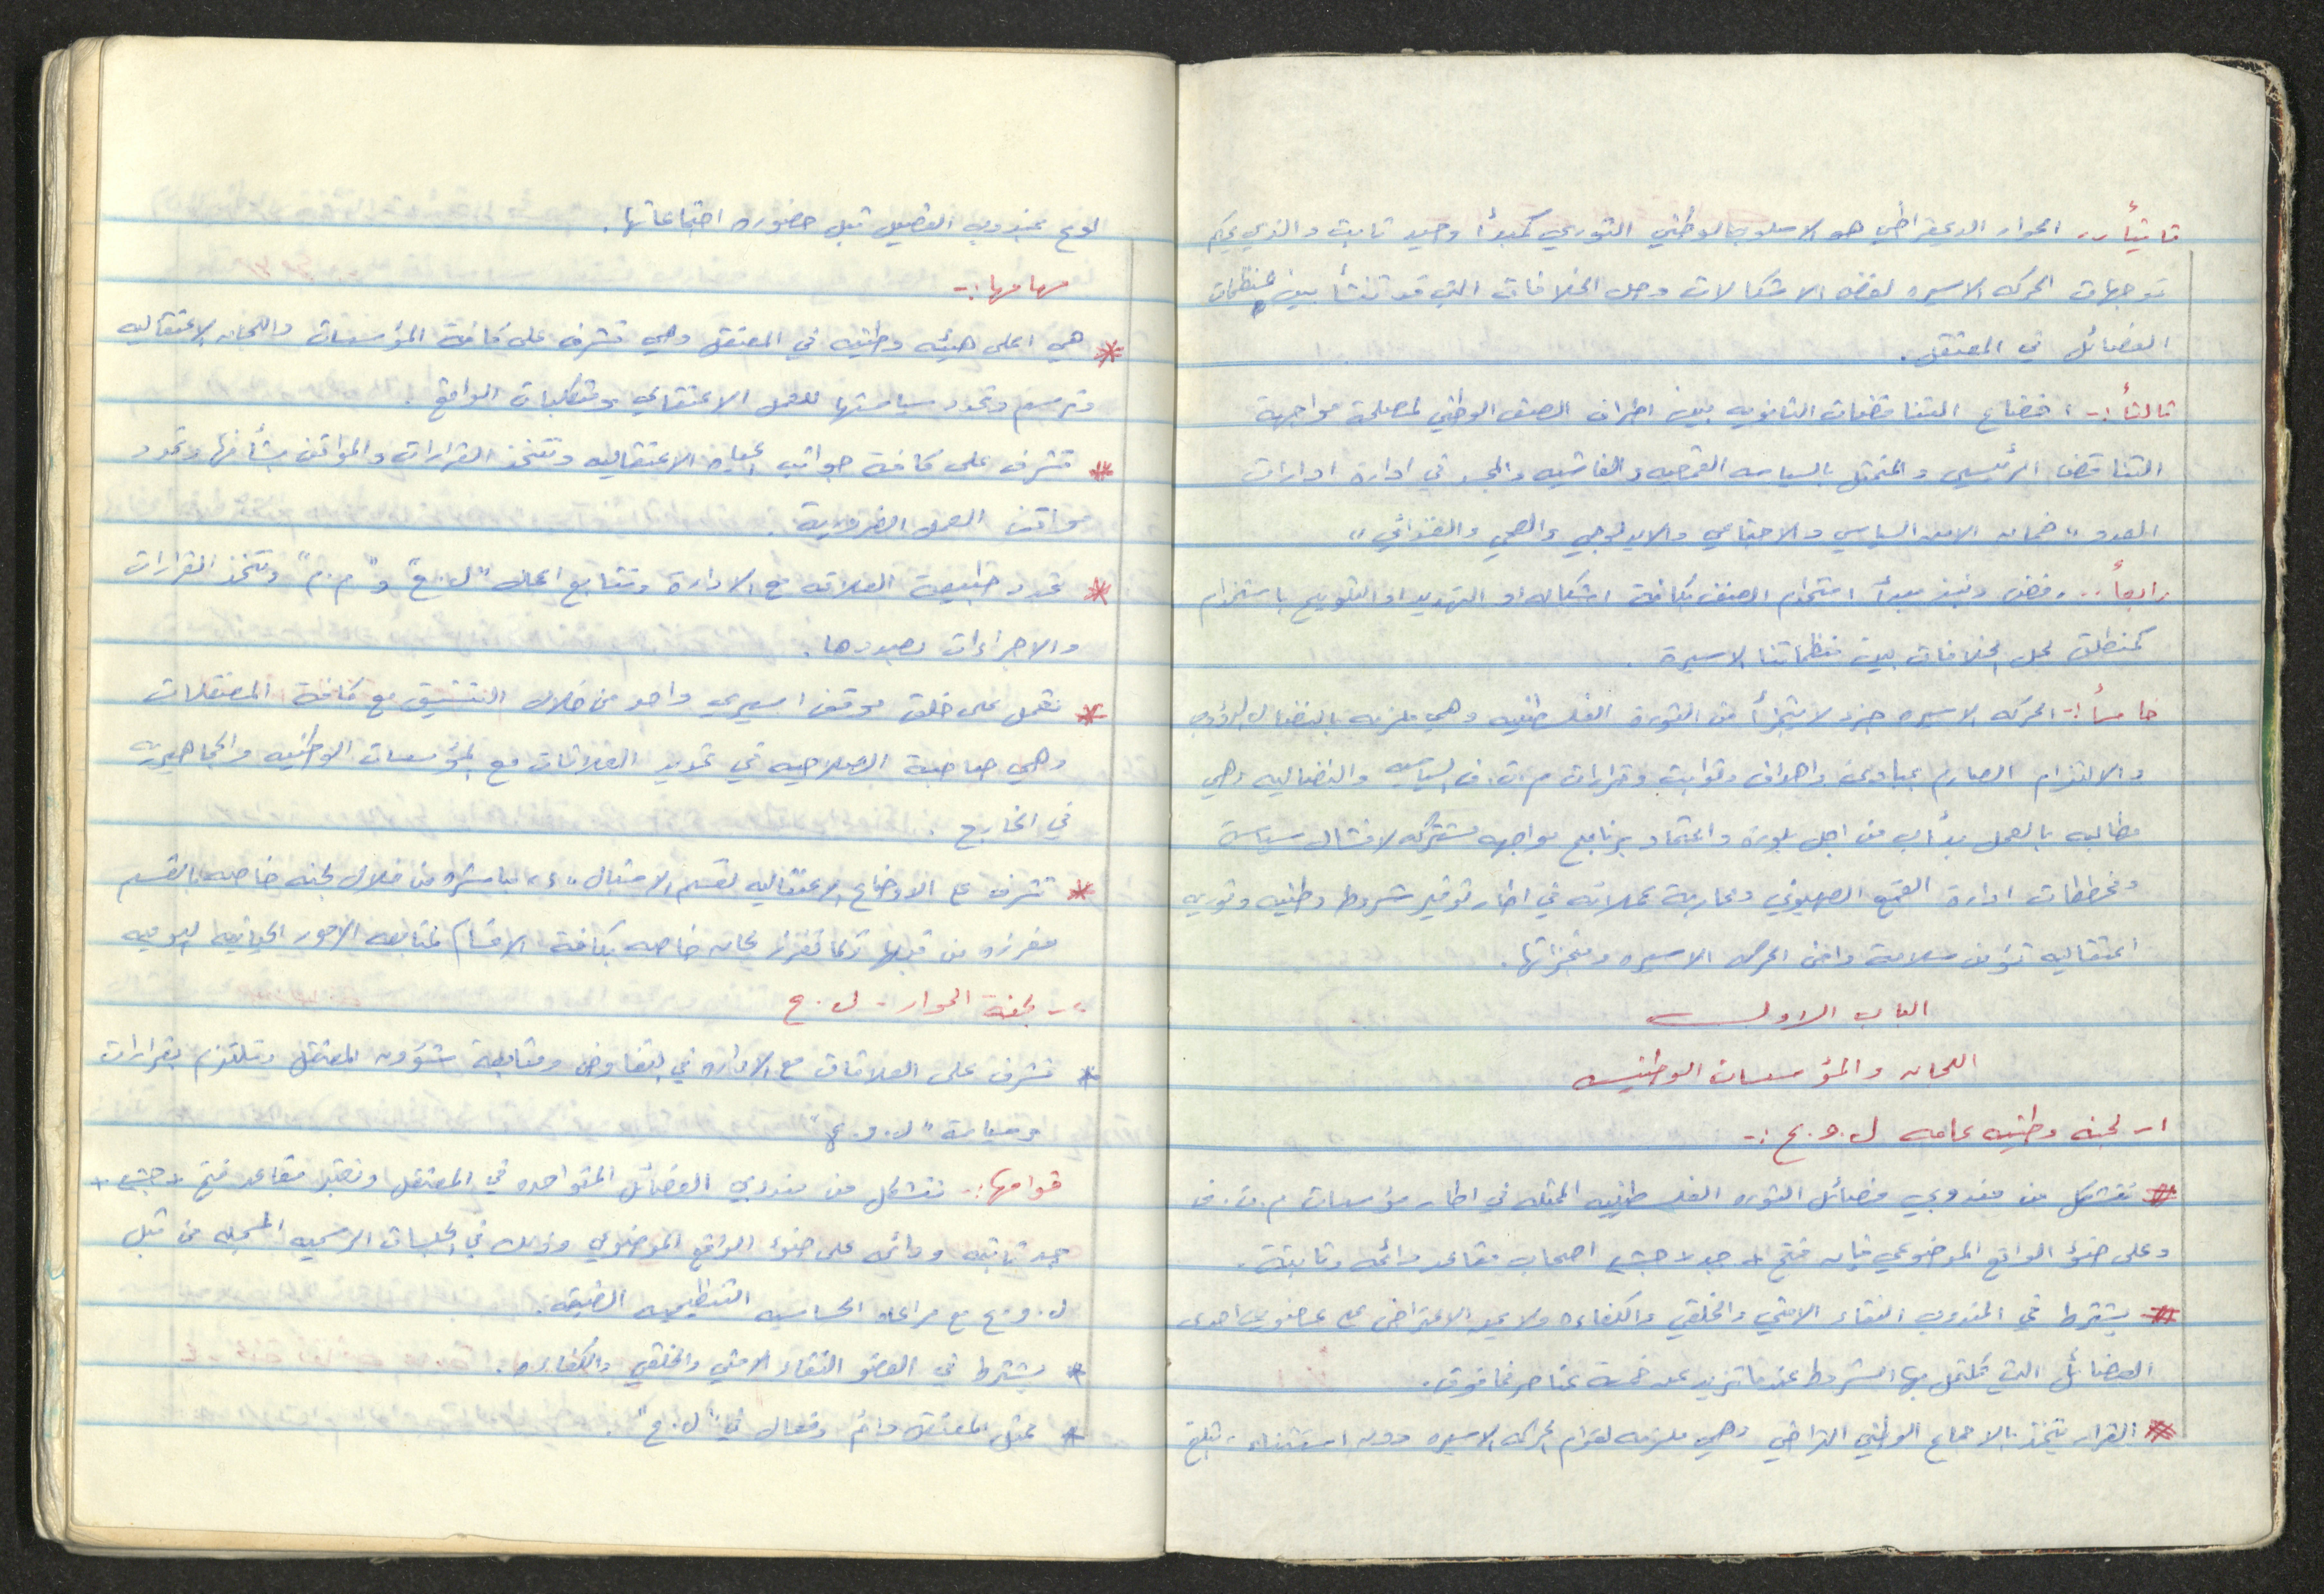 ثانيأ:- الحوار الديمقراطي هو الاسلوب الوطني الثوري كمبدأ وحيد ثابت والذي يحكم
توجهات الحركه الاسيره لفض الاشكالات وحل الخلافات التي قد تنشأ بين منظمات
الفصائل في المعتقل.
ثالثأ:- اخضاع التناقضات الثانويه بين اطراف الصف الوطني لمصلحة مواجهة
التناقض الرئيسي والمتمثل بالسياسه القمعيه والفاشيه والمجسد في ادارة ادارات
العدو "ضمان الامن السياسي والاجتماعي والايدلوجي والصحي والغذائي"
رابعأ:- رفض ونبذ مبدأ استخدام العنف بكافة اشكاله او التهديد او التلويح باستخدام
كمنطلق لحل الخلافات بين منظماتنا الاسيرة.
خامسأ:- الحركه الاسيره جزء لا يتجزأ من الثورة الفلسطينيه وهي ملزمه بالنضال الدؤوب
والالتزام الصارم بمبادئ واهداف وثوابت وقرارات م.ت.ف السياسيه والنضاليه وهي
مطالبه بالعمل بدأب من اجل بلورة واعتماد برنامج مواجهه مشتركه لافشال سياسة
ومخططات ادارة القمع الصهيوني ومحاربة عملائه في اطار توفير شروط وطنيه وثوريه
اعتقاليه تؤمن سلامة وامن الحركه الاسيره ومنجزاتها.
الباب الاول
اللجان والمؤسسات الوطنيه
1- لجنه وطنيه عامه ل.و.ع :-
* تتشكل من مندوبي فصائل الثوره الفلسطينيه الممثله في اطار مؤسسات م.ت.ف
وعلى ضوء الواقع الموضوعي فإن فتح + جد + جش اصحاب مقاعد دائمه وثابتة.
* يشترط في المندوب النقاء الامني والخلقي والكفاءه ولا يجوز الاعتراض على عضوية احدى
الفصائل التي تكتمل بها الشروط عندما تزيد عن خمسة عناصر فما فوق.
* القرار يتخذ بالاجماع الوطني التراضي وهي ملزمه لعموم الحركه الاسيره دون استثناء، تبلغ
ل و ع بمندوب الفصيل قبل حضوره اجتماعاتها.
مهامها:-
* هي اعلى هيئه وطنيه في المعتقل وهي تشرف على كافة المؤسسات واللجان الاعتقاليه
وترسم وتحدد سياستها للعمل الاعتقالي ومتطلبات الواقع.
* تشرف على كافة جوانب الحياه الاعتقاليه وتتخذ القرارات والمواقف بشأنها وتحدد
مواقف العمل الضرورية.
* تحدد طبيعة العلاقه مع الادارة وتتابع اعمال "ل.ح" و "م.م" وتتخذ القرارات
والاجراءات بصددها.
* تعمل على خلق موقف اسيري واحد من خلال التنسيق مع كافة المعتقلات
وهي صاحبة الصلاحيه في تحديد العلاقات مع المؤسسات الوطنيه والجماهيريه
في الخارج.
* تشرف ع الاوضاع الاعتقاليه لقسم الاشبال مباشره من خلال لجنه خاصه بالقسم
مفرزه من قبلها كما تفرز لجان خاصه بكافة الاقسام لمتابعه الامور الحياتيه اليوميه
2- لجنة الحوار - ل.ح
* تشرف على العلاقات مع الاداره في التفاوض ومتابعة شؤون المعتقل وتلتزم بقرارات
وسياسة "ل.و.ع"
قوامها:- تتشكل من مندوبي الفصائل المتواجده في المعتقل وتعتبر مقاعد فتح + جش +
جد ثابته ودائمه على ضوء الواقع الموضوعي وذلك في الجلسات الرسميه المسجله من قبل
ل.و.ع مع مراعاة الحساسيه التنظيميه الضيقه.
* يشترط في العضو النقاء الامني والخلقي والكفاءه.
* ممثل المعتقل دائم وفعال في "ل.ح".